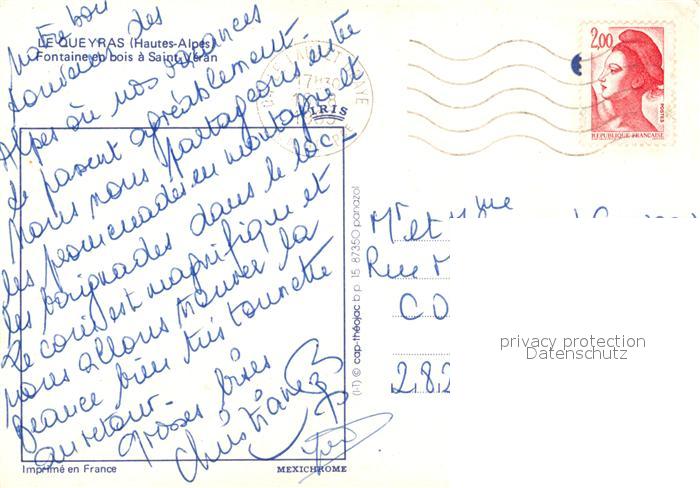 LE QUEYRAS (Hautes-Alpes)
Fontaine en bois à Saint-Véran
Notre bon
souvenir des
Alpes où nos vacances
se passent agréablement.
Nous nous partageons entre
les promenades en montagne et
les baignades dans le lac.
Le coin est magnifique et
nous allons trouver la
Beauce bien tristounette
au retour.
Grosses bises
Christiane
Imprimé en France
MEXICHROME
(I-T) © cap-théojac b.p. 15. 87350 panazol
PARIS
2,00
POSTES
REPUBLIQUE FRANÇAISE
Mr et Mme
Rue
CO
282
privacy protection
Datenschutz